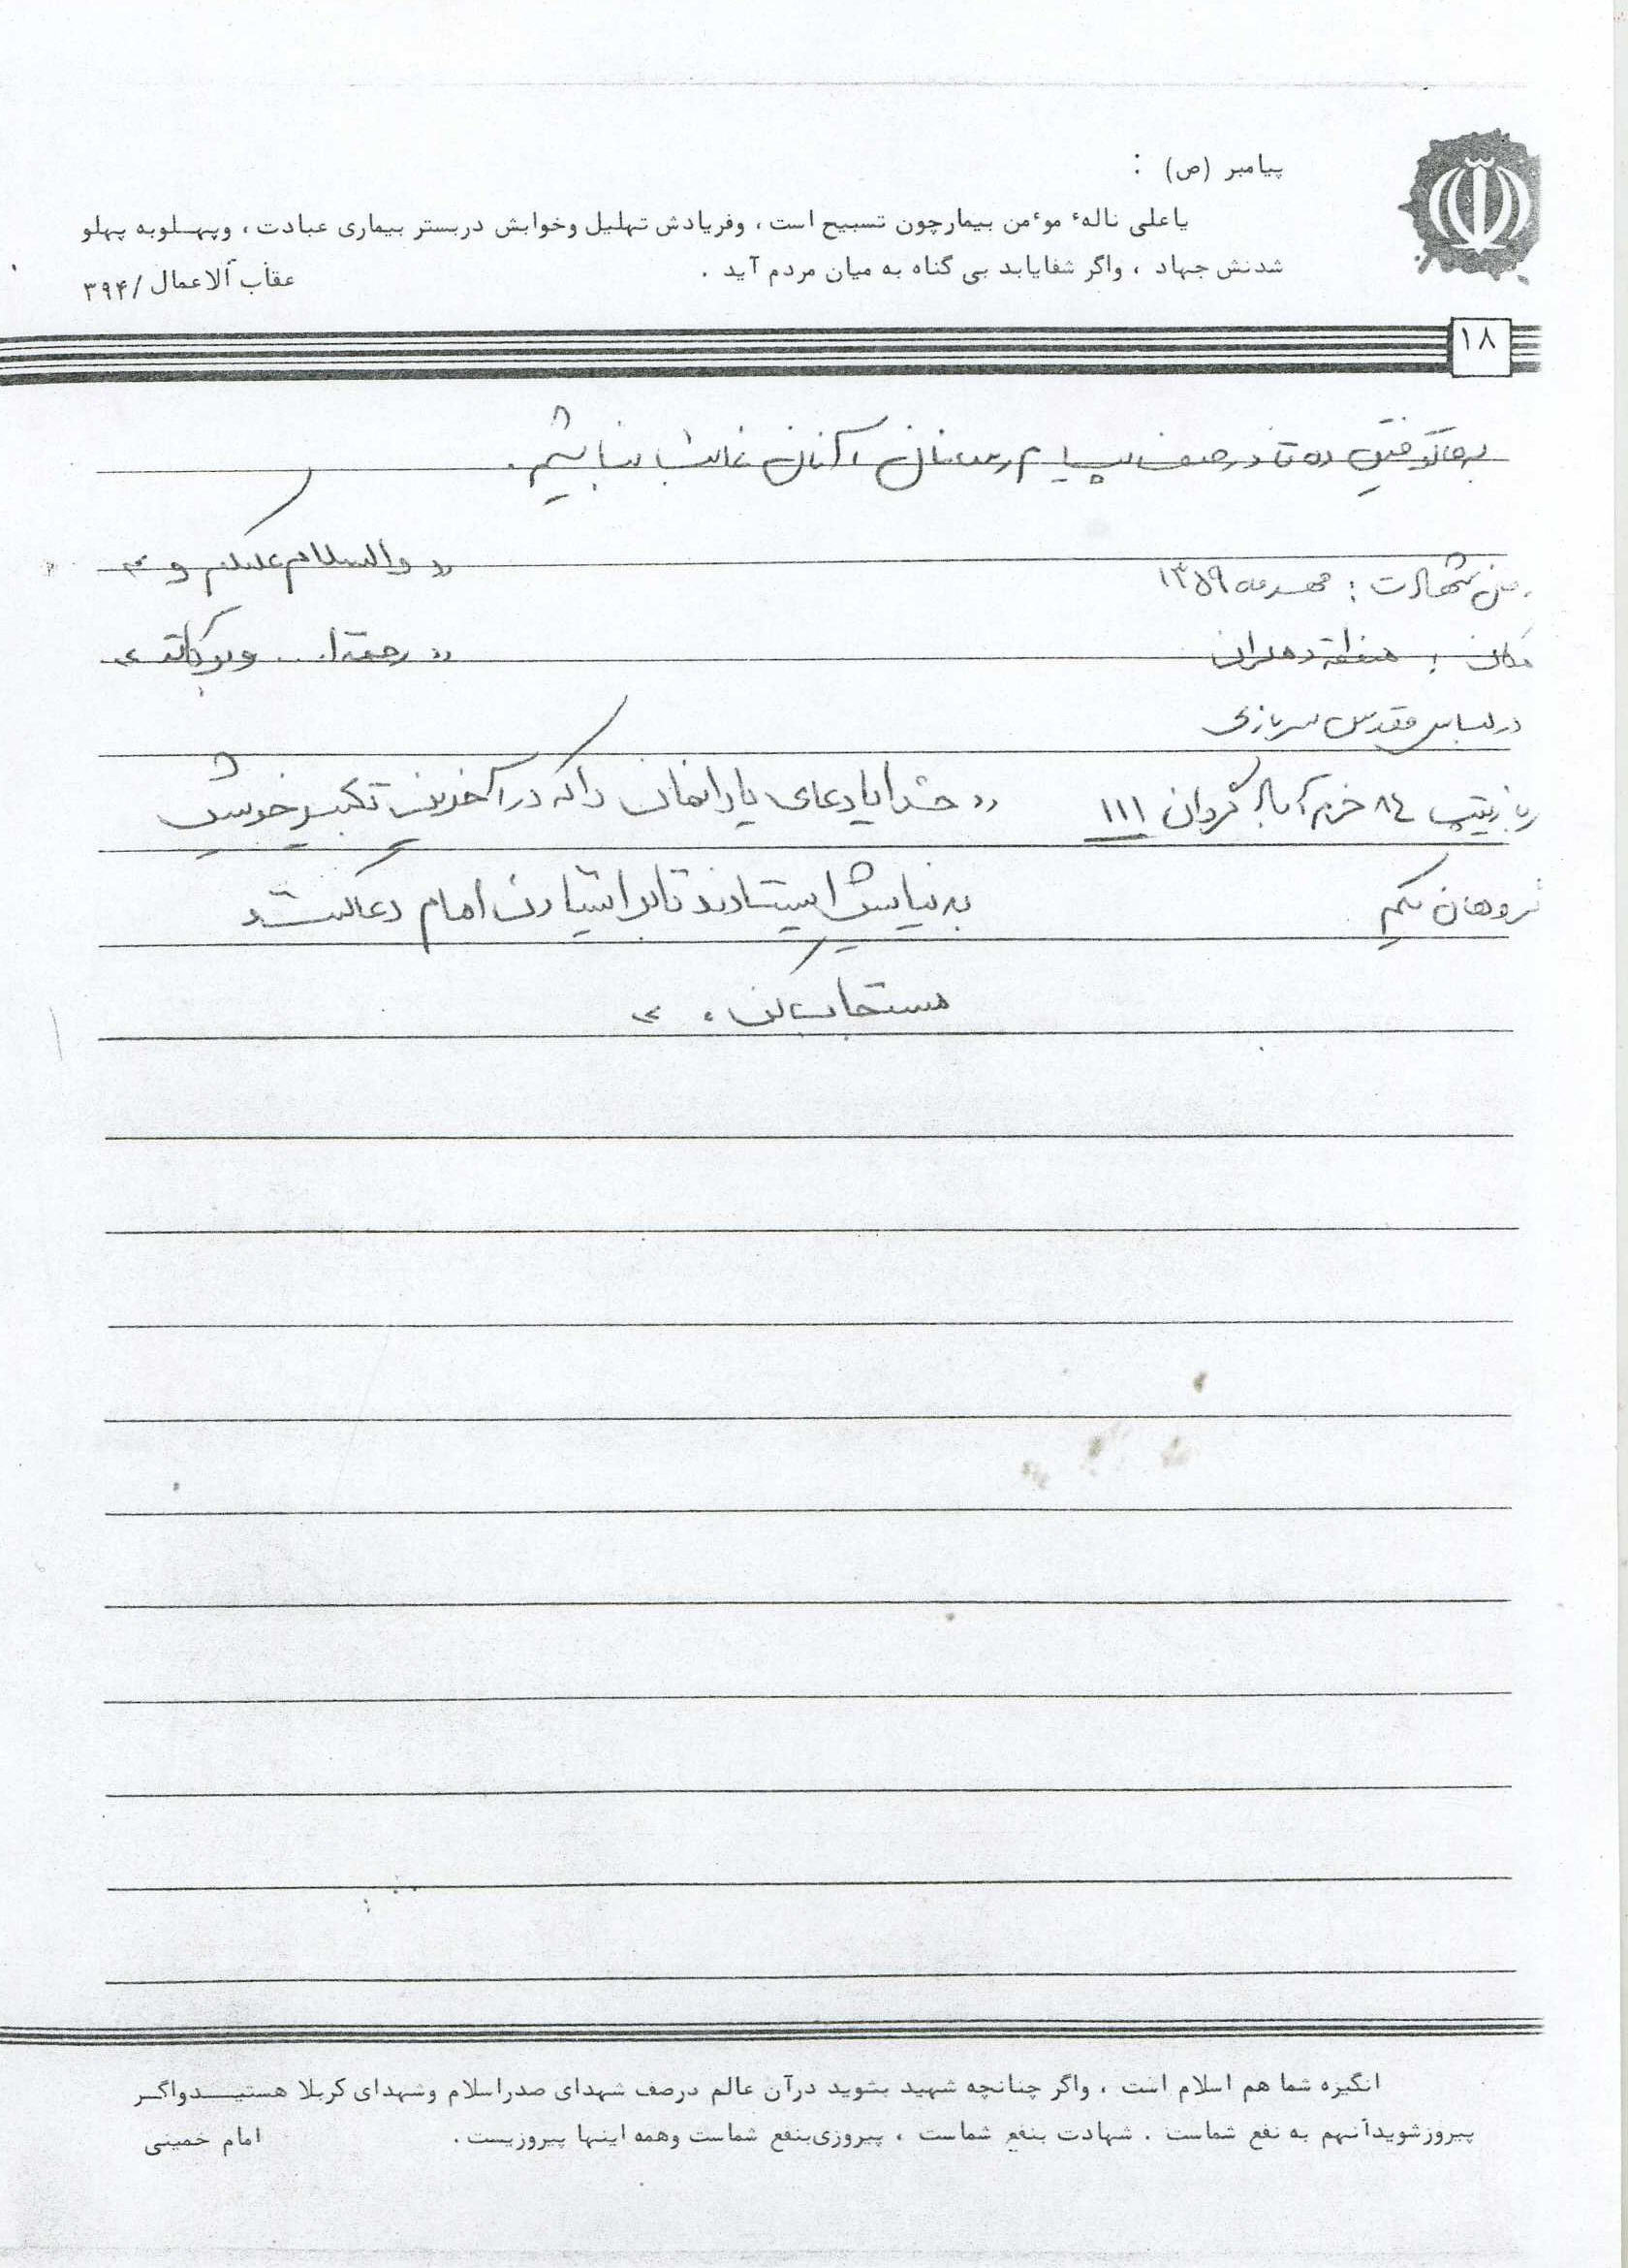 پیامبر (ص) :
یاعلی نالهٔ موٴمن بیمارچون تسبیح است ، وفریادش تهلیل وخوابش دربستر بیماری عبادت ، وپهلوبه پهلو
شدنش جهاد ، واگر شفایابد بی گناه به میان مردم آید .
عقاب آلاعمال /۳۹۴
۱۸
به ما توفیق ده تا در صف پیام رسانان آنان غائب نباشیم .
«والسلام علیکم و»
شهادت : مهرماه ۱۳۵۹
«رحمة ا... وبرکاته»
مکان : منطقه دهلران
در لباس مقدس سربازی
تیپ ۸۴ خرم آباد گردان ۱۱۱
«خدایا دعای یارانمان را که در آخرین تکبیر خویش
گروهان یکم
به نیایش ایستادند تا برای امام دعا کنند
مستجاب کن .»
انگیزه شما هم اسلام است ، واگر چنانچه شهید بشوید درآن عالم درصف شهدای صدراسلام وشهدای کربلا هستیدواگر
پیروزشویدآنهم به نفع شماست . شهادت بنفع شماست ، پیروزی‌بنفع شماست وهمه اینها پیروزیست .
امام خمینی